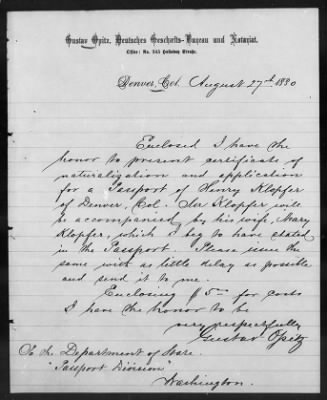 Gustav Opitz, Deutsches Geschäfts-Bureau und Notariat.
Office: No. 345 Holladay Strasse.
Denver, Col. August 27th 1880
Enclosed I have the
honor to present certificate of
naturalization and application
for a Passport of Henry Klopfer
of Denver, Col. Mr Klopfer will
be accompanied by his wife, Mary
Klopfer, which I beg to have stated
in the Passport. Please issue the
same with as little delay as possible
and send it to me.
Enclosing $5 for costs
I have the honor to be
very respectfully
Gustav Opitz
To the Department of State.
"Passport Division"
Washington.